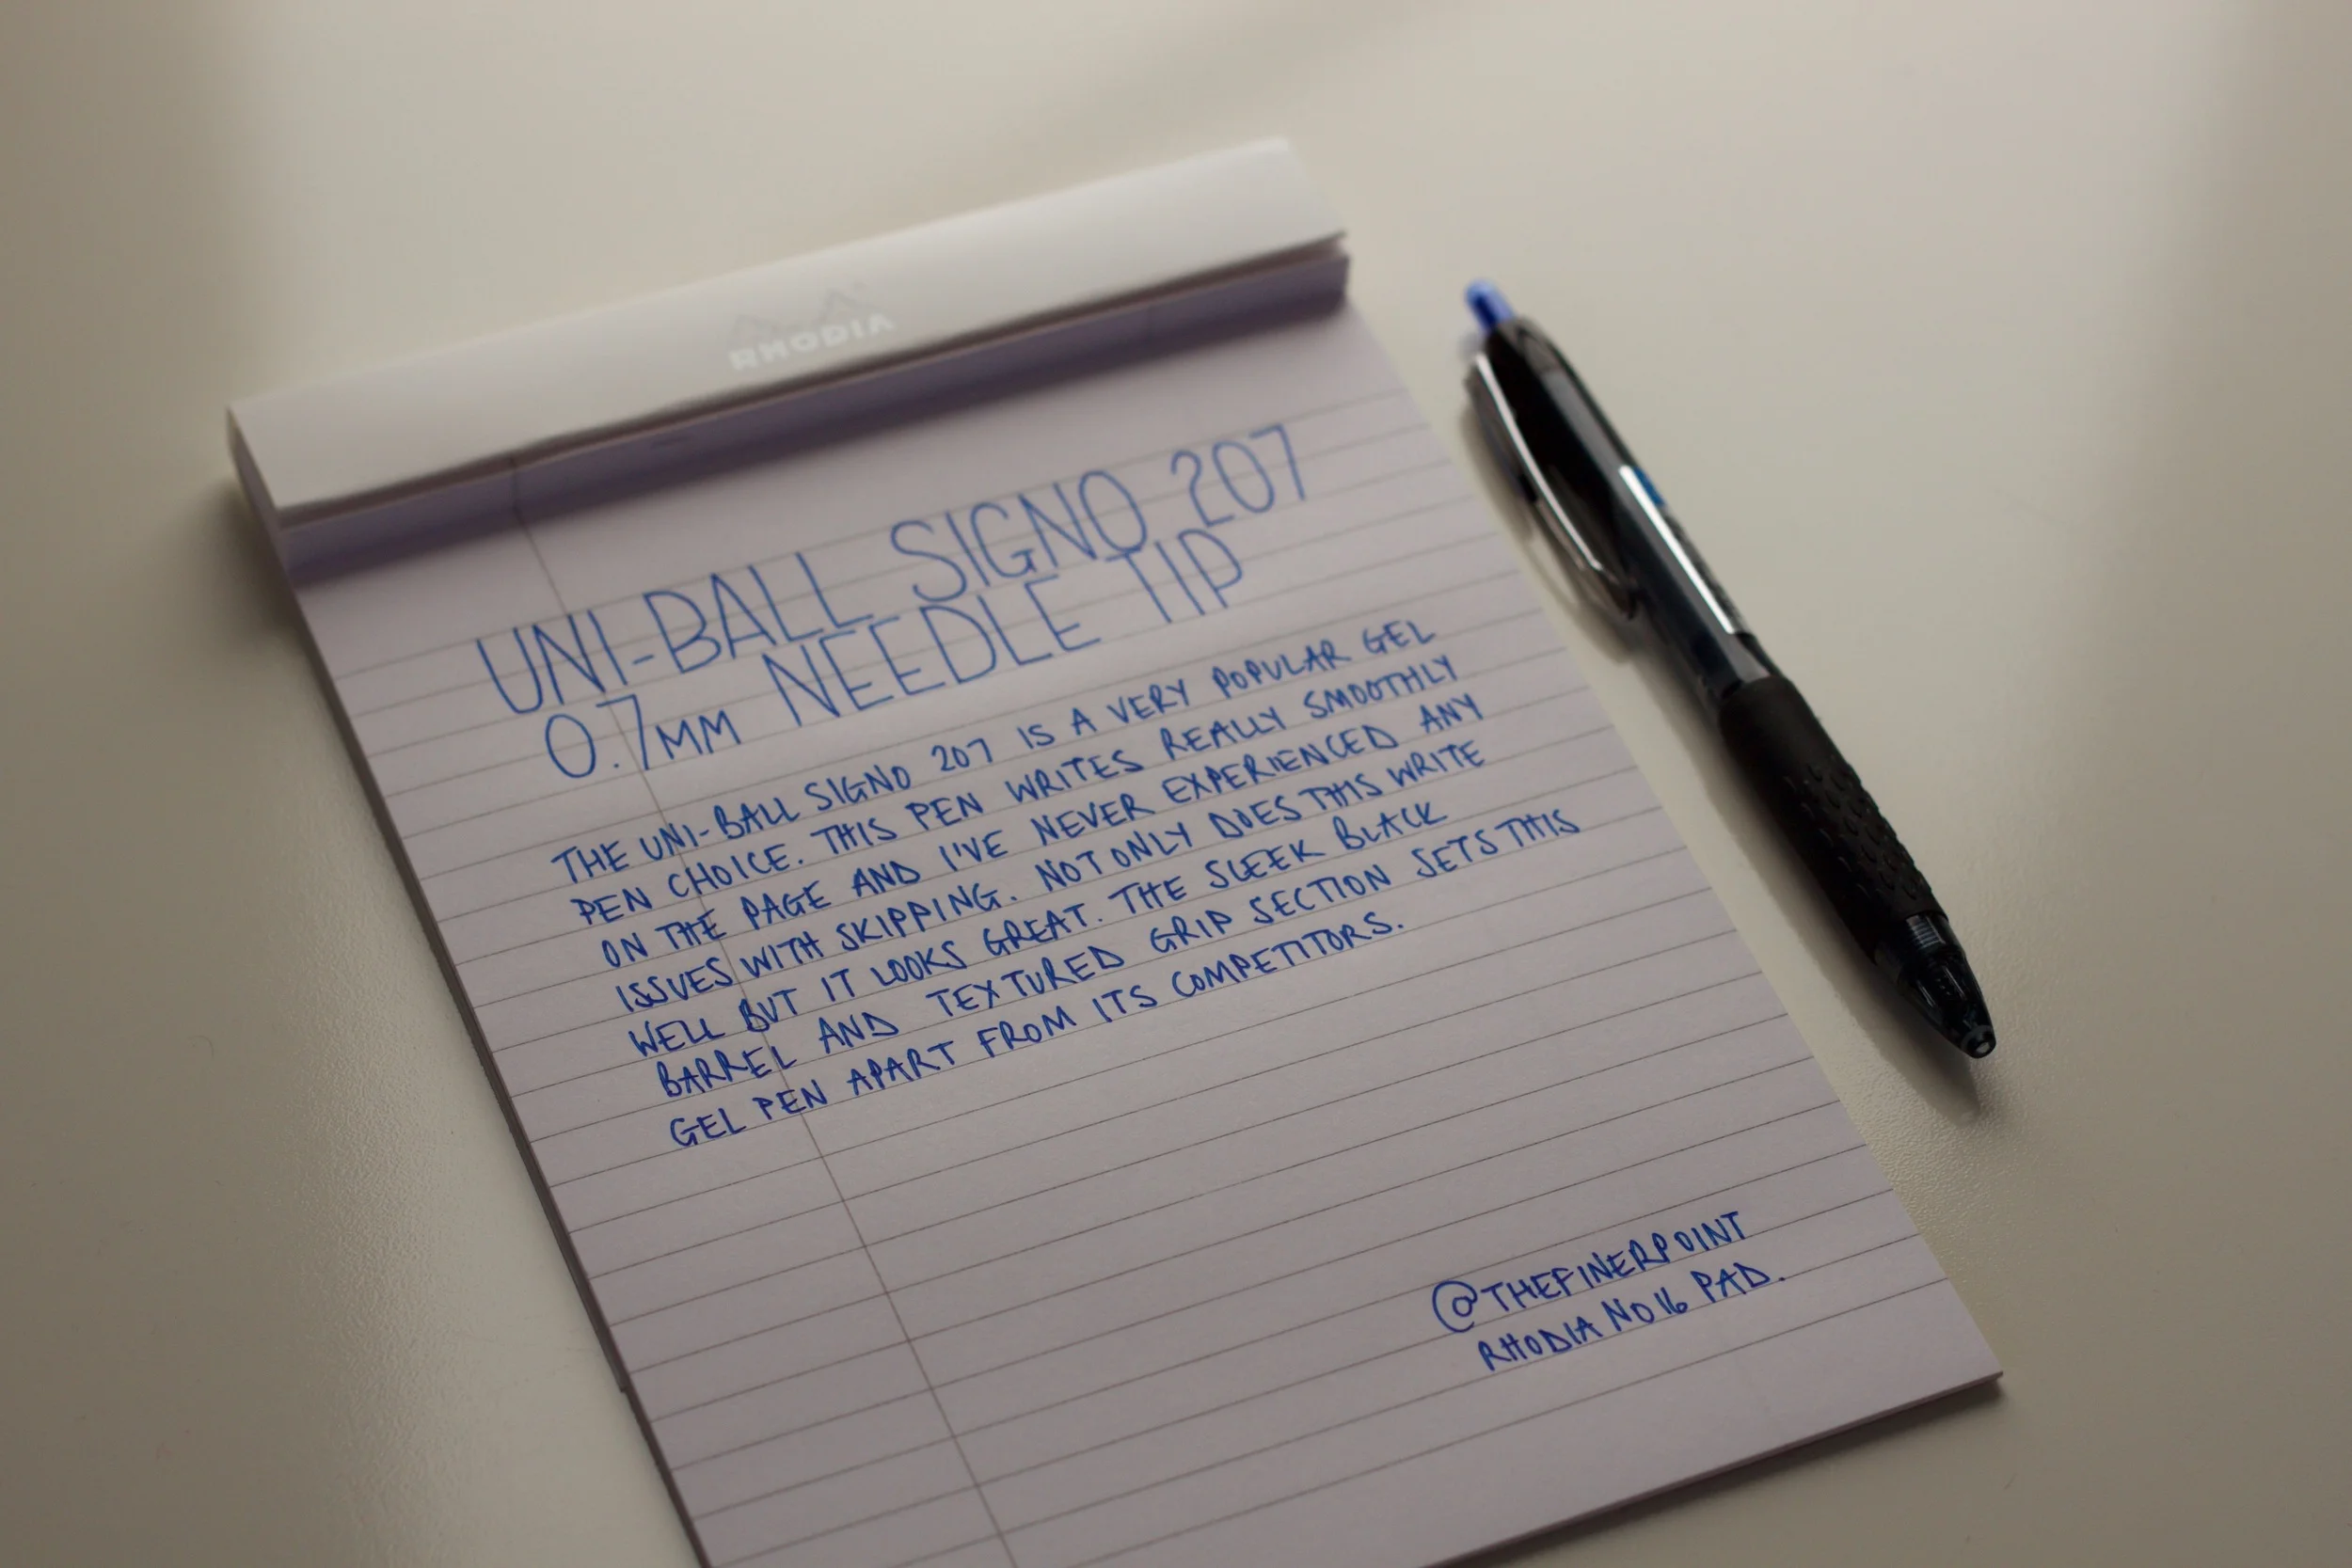 RHODIA
UNI-BALL SIGNO 207
0.7MM NEEDLE TIP
THE UNI-BALL SIGNO 207 IS A VERY POPULAR GEL
PEN CHOICE. THIS PEN WRITES REALLY SMOOTHLY
ON THE PAGE AND I'VE NEVER EXPERIENCED ANY
ISSUES WITH SKIPPING. NOT ONLY DOES THIS WRITE
WELL BUT IT LOOKS GREAT. THE SLEEK BLACK
BARREL AND TEXTURED GRIP SECTION SETS THIS
GEL PEN APART FROM ITS COMPETITORS.
@THEFINERPOINT
RHODIA NO 16 PAD.